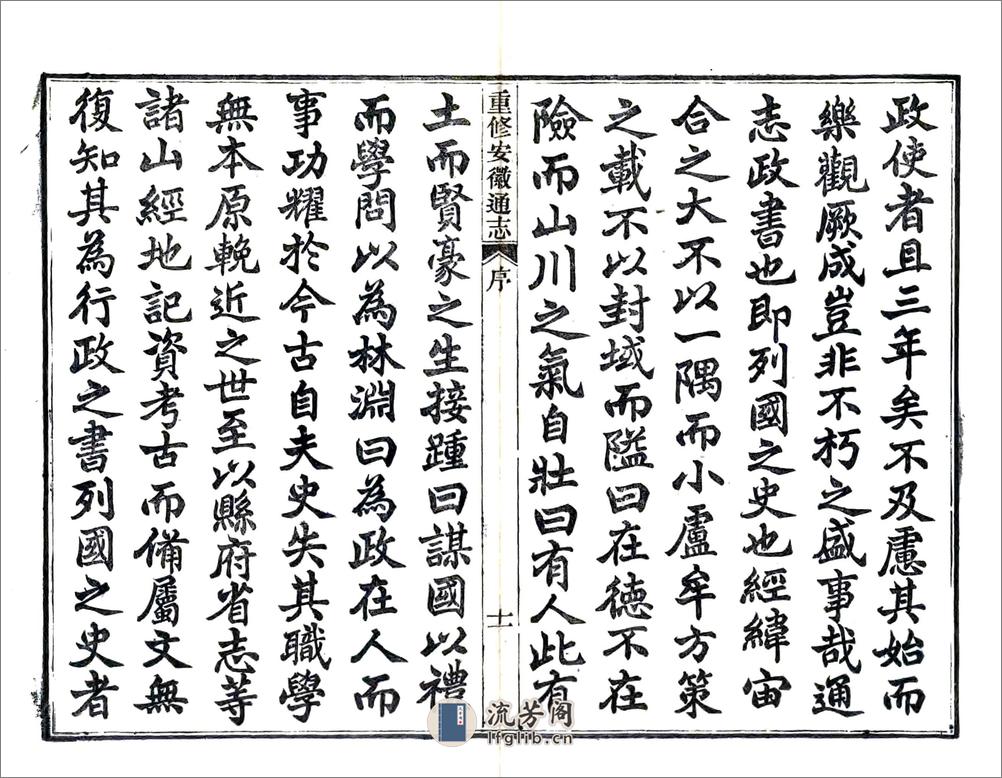 政使者且三年矣不及慮其始而
樂觀厥成豈非不朽之盛事哉通
志政書也即列國之史也經緯宙
合之大不以一隅而小盧牟方策
之載不以封域而隘曰在德不在
險而山川之氣自壯曰有人此有
重修安徽通志 序 十一
土而賢豪之生接踵曰謀國以禮
而學問以為林淵曰為政在人而
事功耀於今古自夫史失其職學
無本原輓近之世至以縣府省志等
諸山經地記資考古而備屬文無
復知其為行政之書列國之史者
流芳阁
lfglib.cn